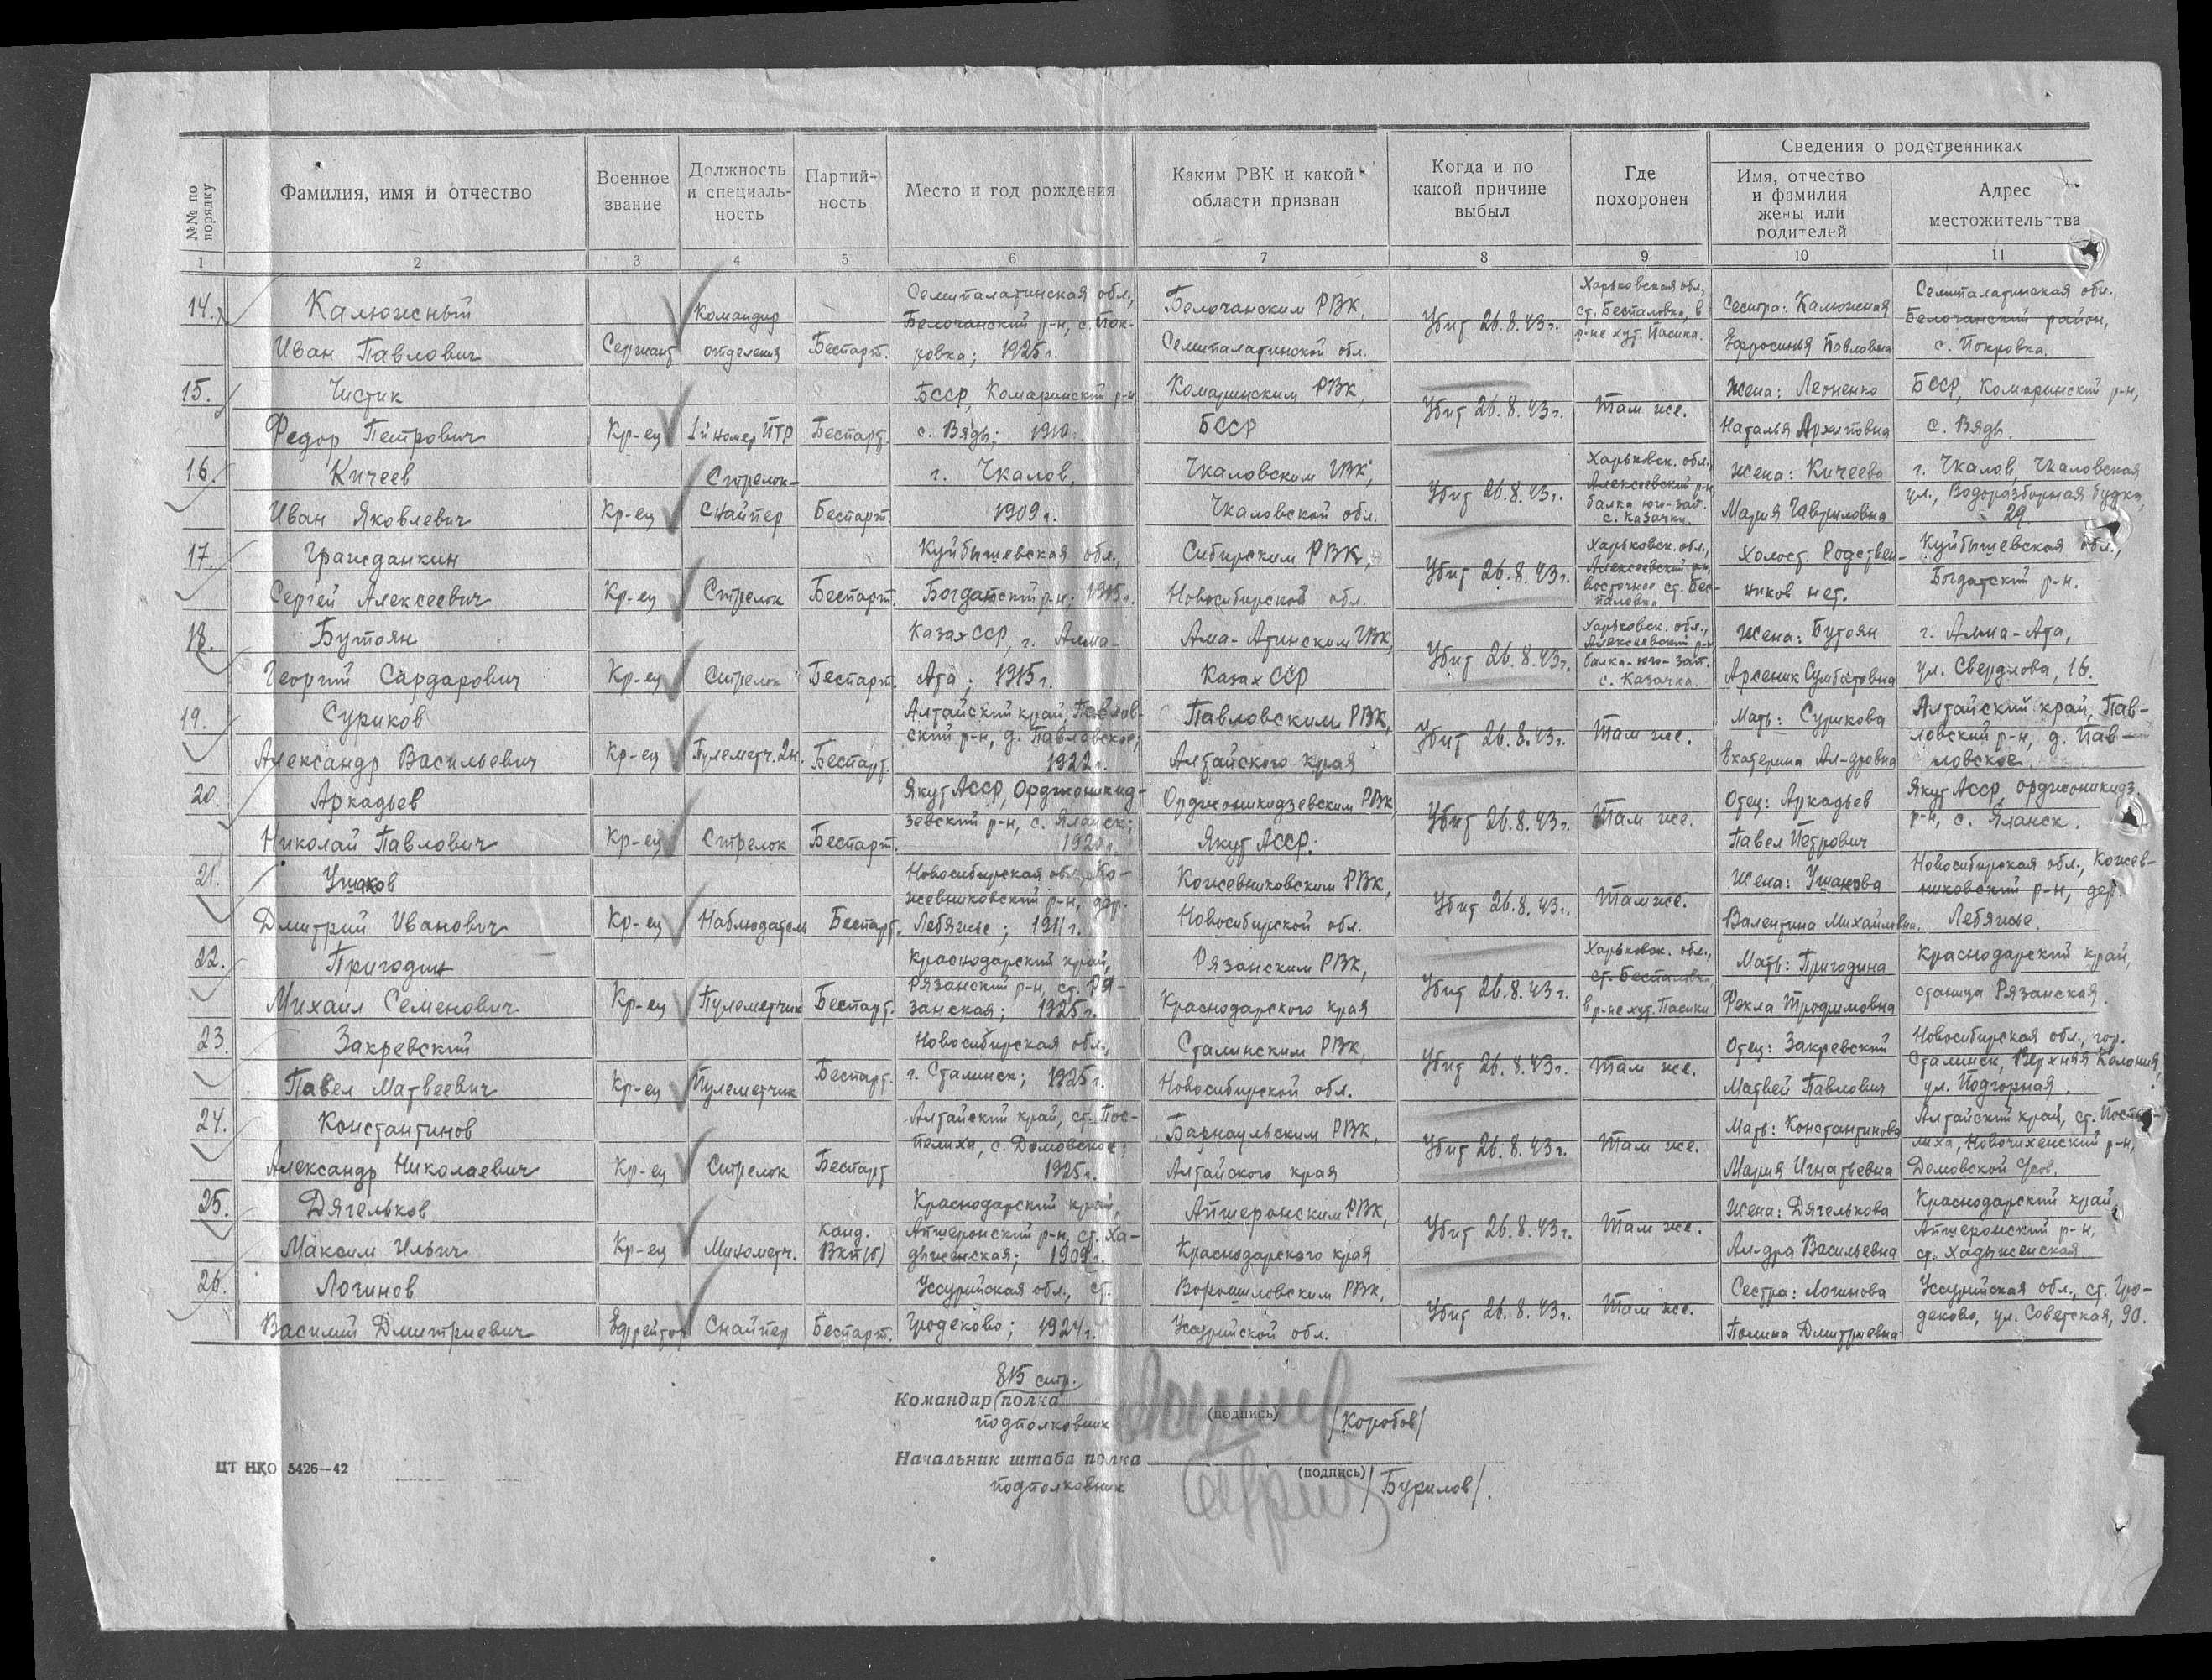 №№ по порядку
Фамилия, имя и отчество
Военное звание
Должность и специаль-ность
Партий-ность
Место и год рождения
Каким РВК и какой области призван
Когда и по какой причине выбыл
Где похоронен
Сведения о родственниках
Имя, отчество и фамилия жены или родителей
Адрес местожительства
1 2 3 4 5 6 7 8 9 10 11
14. Калюжный Иван Павлович
Сержант
Командир отделения
Беспарт.
Семипалатинская обл., Белочанский р-н, с. Пок-ровка; 1925 г.
Белочанским РВК, Семипалатинской обл.
Убит 26.8.43 г.
Харьковская обл., ст. Беспаловка, в р-не хут. Пасика.
Сестра: Калюжная Ефросинья Павловна
Семипалатинская обл., Белочанский район, с. Покровка.
15. Чистик Федор Петрович
Кр-ец
1й номер ПТР
Беспарт.
БССР, Комаринский р-н с. Вядь; 1910.
Комаринским РВК, БССР
Убит 26.8.43 г.
Там же.
Жена: Леоненко Наталья Архиповна
БССР, Комаринский р-н, с. Вядь.
16. Кичеев Иван Яковлевич
Кр-ец
Стрелок-снайпер
Беспарт.
г. Чкалов, 1909 г.
Чкаловским ГВК, Чкаловской обл.
Убит 26.8.43 г.
Харьковск. обл., Алексеевский р-н балка юго-зап. с. Казачки.
Жена: Кичеева Мария Гавриловна
г. Чкалов, Чкаловская ул., Водоразборная будка, 29.
17. Гражданкин Сергей Алексеевич
Кр-ец
Стрелок
Беспарт.
Куйбышевская обл., Богдатский р-н; 1915 г.
Сибирским РВК, Новосибирской обл.
Убит 26.8.43 г.
Харьковск. обл., Алексеевский р-н, восточнее ст. Бес-паловка
Холост. Родствен-ников нет.
Куйбышевская обл., Богдатский р-н.
18. Бутоян Георгий Сардарович
Кр-ец
Стрелок
Беспарт.
Казах ССР, г. Алма-Ата; 1915 г.
Ама-Атинским ГВК, Казах ССР
Убит 26.8.43 г.
Харьковск. обл., Алексеевский р-н балка-юго-зап. с. Казачка.
Жена: Бутоян Арсеник Сумбатовна
г. Алма-Ата, ул. Свердлова, 16.
19. Суриков Александр Васильевич
Кр-ец
Пулеметч. 2н.
Беспарт.
Алтайский край, Павлов-ский р-н, д. Павловское; 1922 г.
Павловским РВК, Алтайского края
Убит 26.8.43 г.
Там же.
Мать: Сурикова Екатерина Ал-дровна
Алтайский край, Пав-ловский р-н, д. Пав-ловское.
20. Аркадьев Николай Павлович
Кр-ец
Стрелок
Беспарт.
Якут АССР, Орджоникид-зевский р-н, с. Яланск;
Орджоникидзевским РВК Якут АССР.
Убит 26.8.43 г.
Там же.
Отец: Аркадьев Павел Петрович
Якут АССР, орджоникидз. р-н, с. Яланск.
21. Ушаков Дмитрий Иванович
Кр-ец
Наблюдатель
Беспарт.
Новосибирская обл., Ко-жевниковский р-н, дер. Лебяжье; 1911 г.
Кожевниковским РВК, Новосибирской обл.
Убит 26.8.43 г.
Там же.
Жена: Ушакова Валентина Михайловна.
Новосибирская обл., Кожев-никовский р-н, дер. Лебяжье.
22. Пригодин Михаил Семенович
Кр-ец
Пулеметчик
Беспарт.
Краснодарский край, Рязанский р-н, ст. Ря-занская; 1925 г.
Рязанским РВК, Краснодарского края
Убит 26.8.43 г.
Харьковск. обл., ст. Беспаловка, в р-не хут. Пасики
Мать: Пригодина Фекла Трофимовна
Краснодарский край, станица Рязанская.
23. Закревский Павел Матвеевич
Кр-ец
Пулеметчик
Беспарт.
Новосибирская обл., г. Сталинск; 1925 г.
Сталинским РВК, Новосибирской обл.
Убит 26.8.43 г.
Там же.
Отец: Закревский Матвей Павлович
Новосибирская обл., гор. Сталинск, Верхняя Колония, ул. Подгорная.
24. Константинов Александр Николаевич
Кр-ец
Стрелок
Беспарт
Алтайский край, ст. Пос-пелиха, с. Домовское; 1925 г.
Барнаульским РВК, Алтайского края
Убит 26.8.43 г.
Там же.
Мать: Константинова Мария Игнатьевна
Алтайский край, ст. Поспе-лиха, Новочихенский р-н, Домовской
25. Дягельков Максим Ильич
Кр-ец
Минометч.
Канд. ВКП(б)
Краснодарский край, Апшеронский р-н, ст. Ха-дыженская; 1909 г.
Апшеронским РВК, Краснодарского края
Убит 26.8.43 г.
Там же.
Жена: Дягелькова Ал-дра Васильевна
Краснодарский край, Апшеронский р-н, ст. Хадыженская
26. Логинов Василий Дмитриевич
Ефрейтор
Снайпер
Беспарт.
Уссурийская обл., ст. Гродеково; 1924 г.
Ворошиловским РВК, Уссурийской обл.
Убит 26.8.43 г.
Там же.
Сестра: Логинова Полина Дмитриевна
Уссурийская обл., ст. Гро-деково, ул. Советская, 90.
815 стр.
Командир полка
подполковник (подпись) /Коробов/
Начальник штаба полка
подполковник (подпись) /Бурилов/.
ЦТ НКО 5426—42